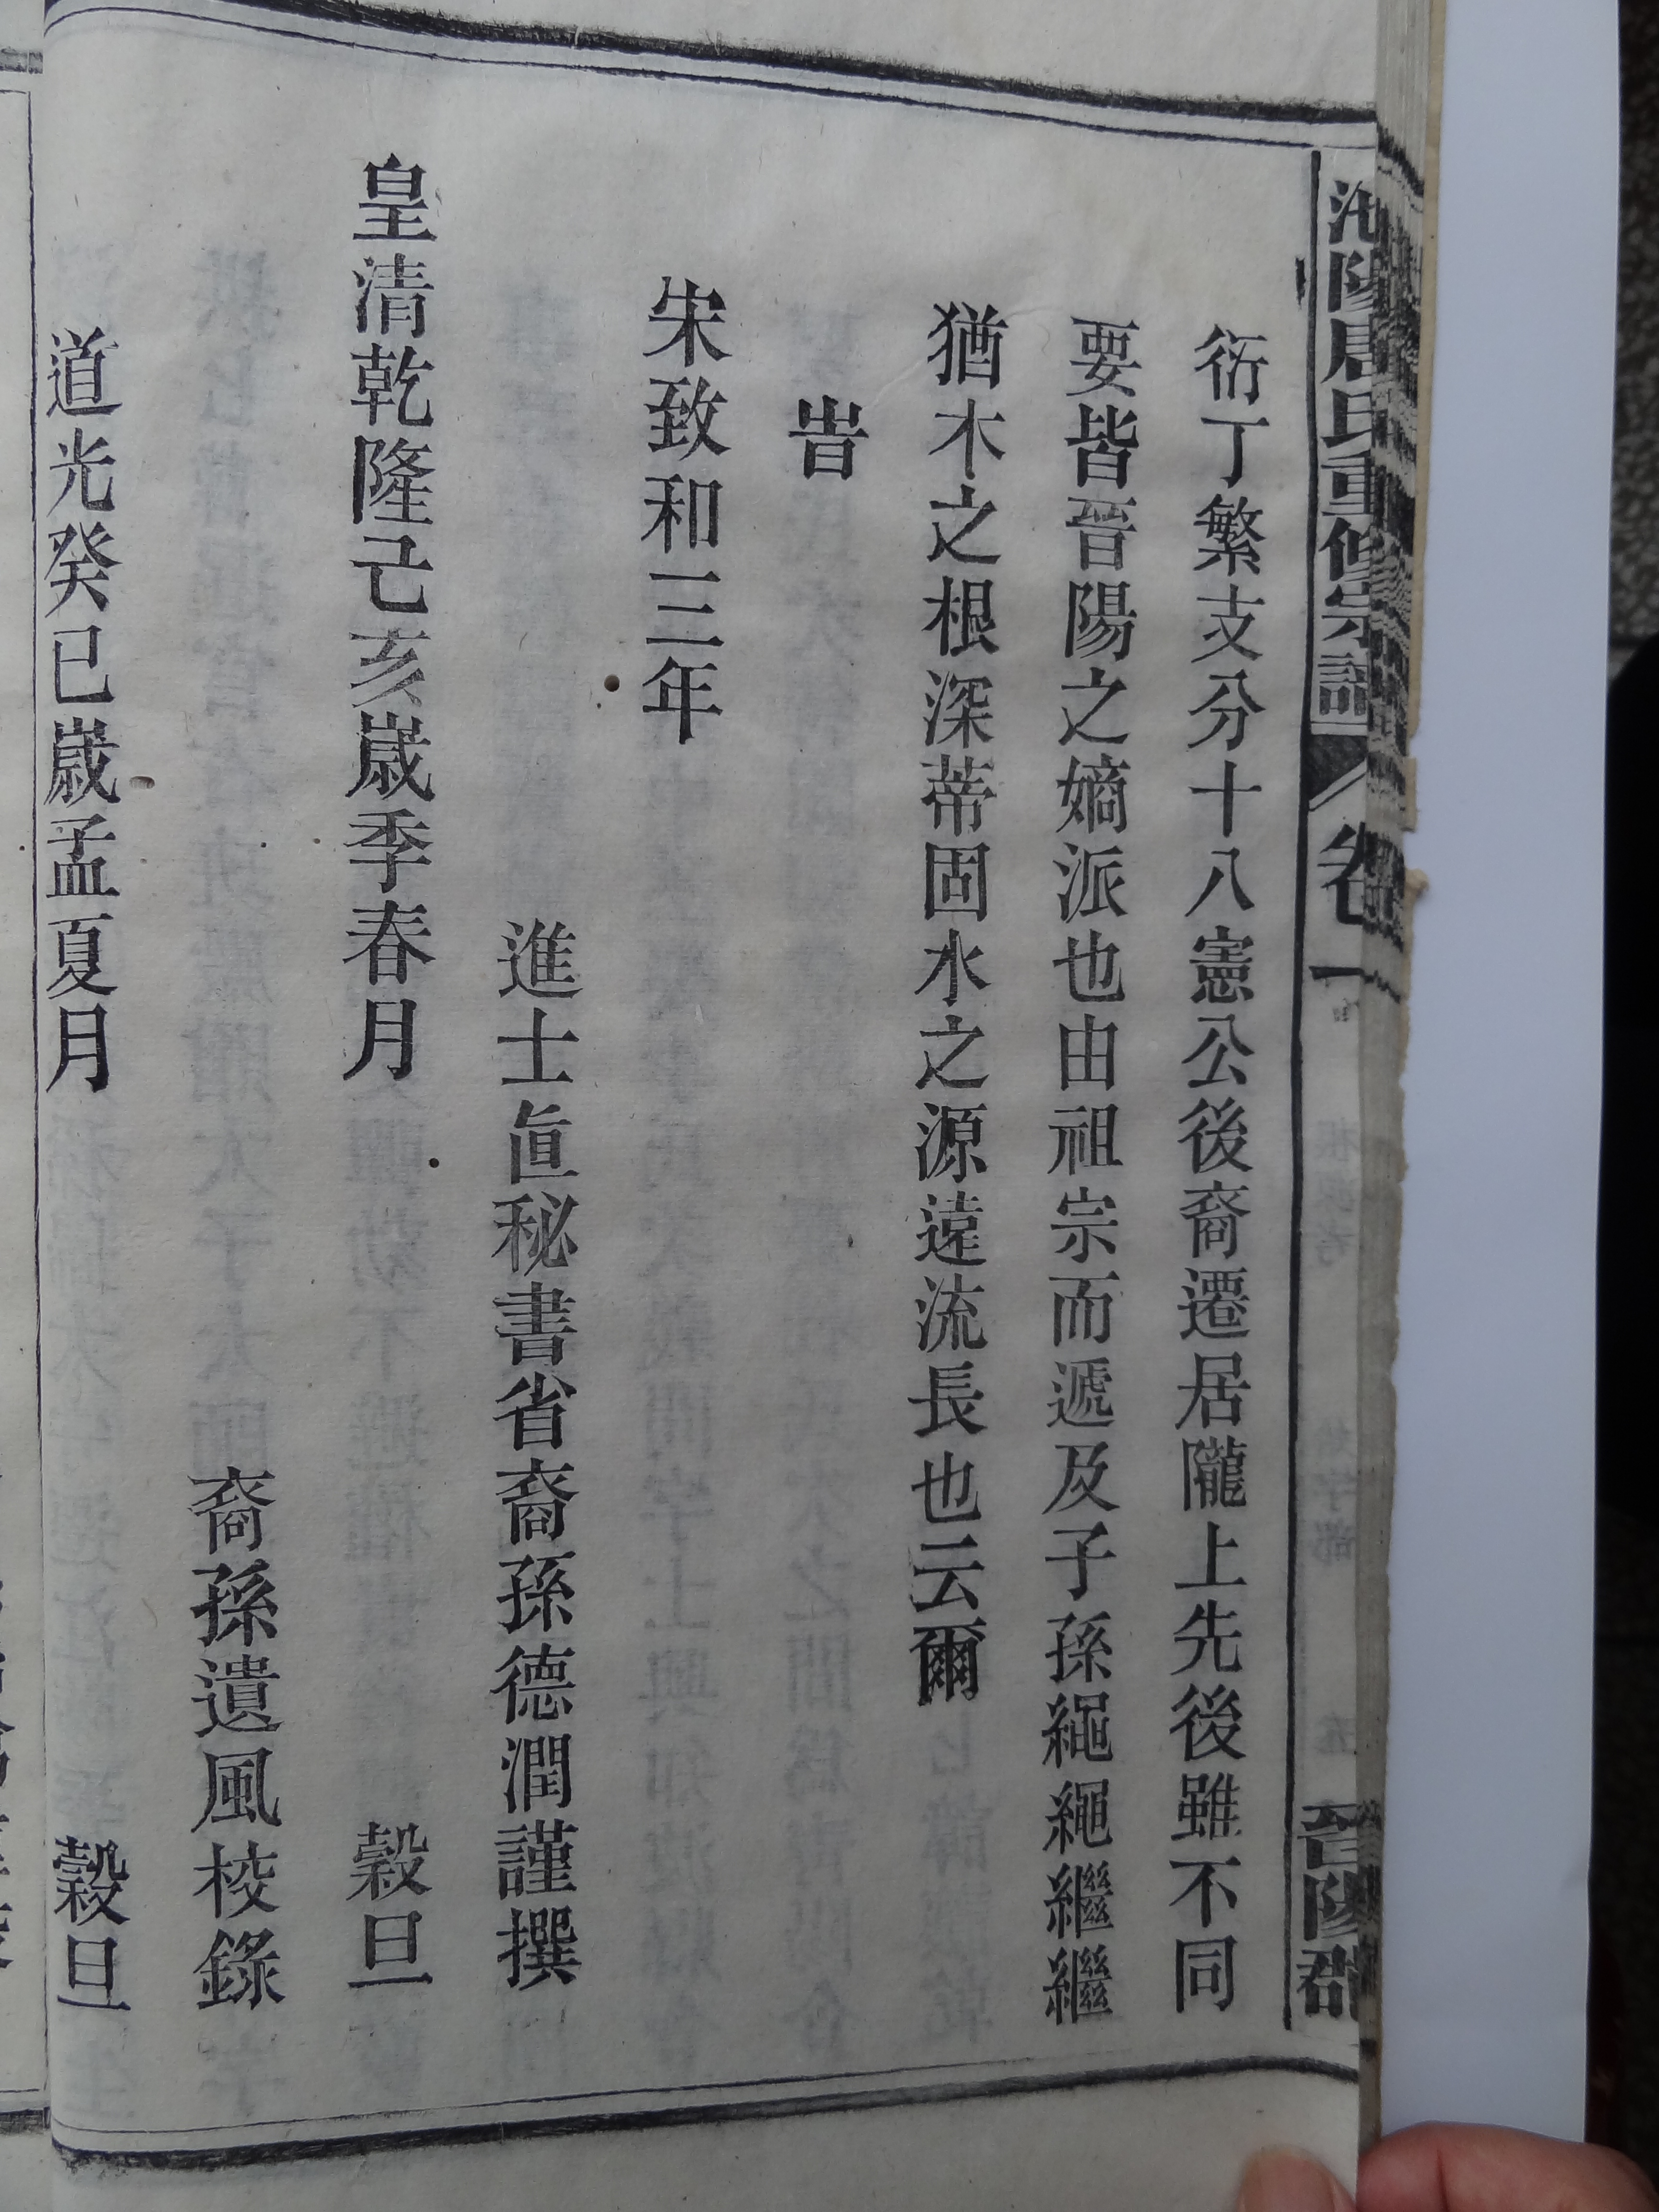 沔陽唐氏重修宗譜 卷一 晉陽郡
衍丁繁支分十八憲公後裔遷居隴上先後雖不同
要皆晉陽之嫡派也由祖宗而遞及子孫繩繩繼繼
猶木之根深蒂固水之源遠流長也云爾
旹
宋致和三年
進士直秘書省裔孫德潤謹撰
皇清乾隆己亥歲季春月 穀旦
裔孫遺風校錄
道光癸巳歲孟夏月 穀旦